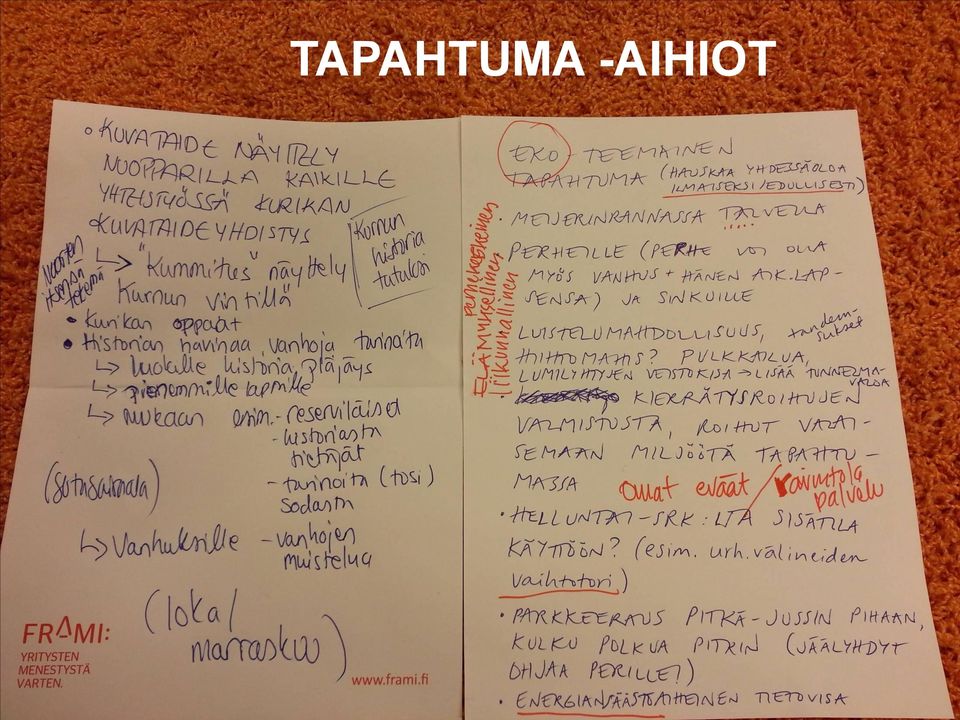 TAPAHTUMA -AIHIOT
• KUVATAIDE NÄYTTELY
NUOPPARILLA KAIKILLE
YHTEISTYÖSSÄ KURIKAN
KUVATAIDEYHDISTYS
↳ "Kummitus" näyttely
Kurnun vintillä
Nuorten
itsensä
tekemä
Kurnun
historia
tutuksi
• Kurikan oppaat
• Historian havinaa, vanhoja tarinoita
↳ luokille historia pläjäys
↳ pienemmille lapsille
↳ mukaan esim. - reserviläiset
- historiasta
tietäjät
- tarinoita (tosi)
sodasta
(Sotasairaala)
↳ Vanhuksille - vanhojen
muistelua
(loka/
marraskuu)
FRAMI:
YRITYSTEN
MENESTYSTÄ
VARTEN.
www.frami.fi
EKO-TEEMAINEN
TAPAHTUMA (HAUSKAA YHDESSÄOLOA
ILMAISEKSI/EDULLISESTI)
• MEIJERINRANNASSA TALVELLA
PERHEILLE (PERHE VOI OLLA
MYÖS VANHUS + HÄNEN AIK.LAP-
SENSA) JA SINKUILLE
perhekeskeinen
ELÄMYKSELLINEN
liikunnallinen
LUISTELUMAHDOLLISUUS, tandem-
sukset
HIIHTOMAHIS? PULKKAILUA,
LUMILYHTYJEN VEISTOKISA → LISÄÄ TUNNELMA-
VALOA
• KIERRÄTYSROIHUJEN
VALMISTUSTA, ROIHUT VALAI-
SEMAAN MILJÖÖTÄ TAPAHTU-
MASSA
omat eväät / ravintola
palvelu
• HELLUNTAI-SRK:LTA SISÄTILA
KÄYTTÖÖN? (esim. urh.välineiden
vaihtotori)
• PARKKEERAUS PITKÄ-JUSSIN PIHAAN,
KULKU POLKUA PITKIN (JÄÄLYHDYT
OHJAA PERILLE!)
• ENERGIANSÄÄSTÖAIHEINEN TIETOVISA